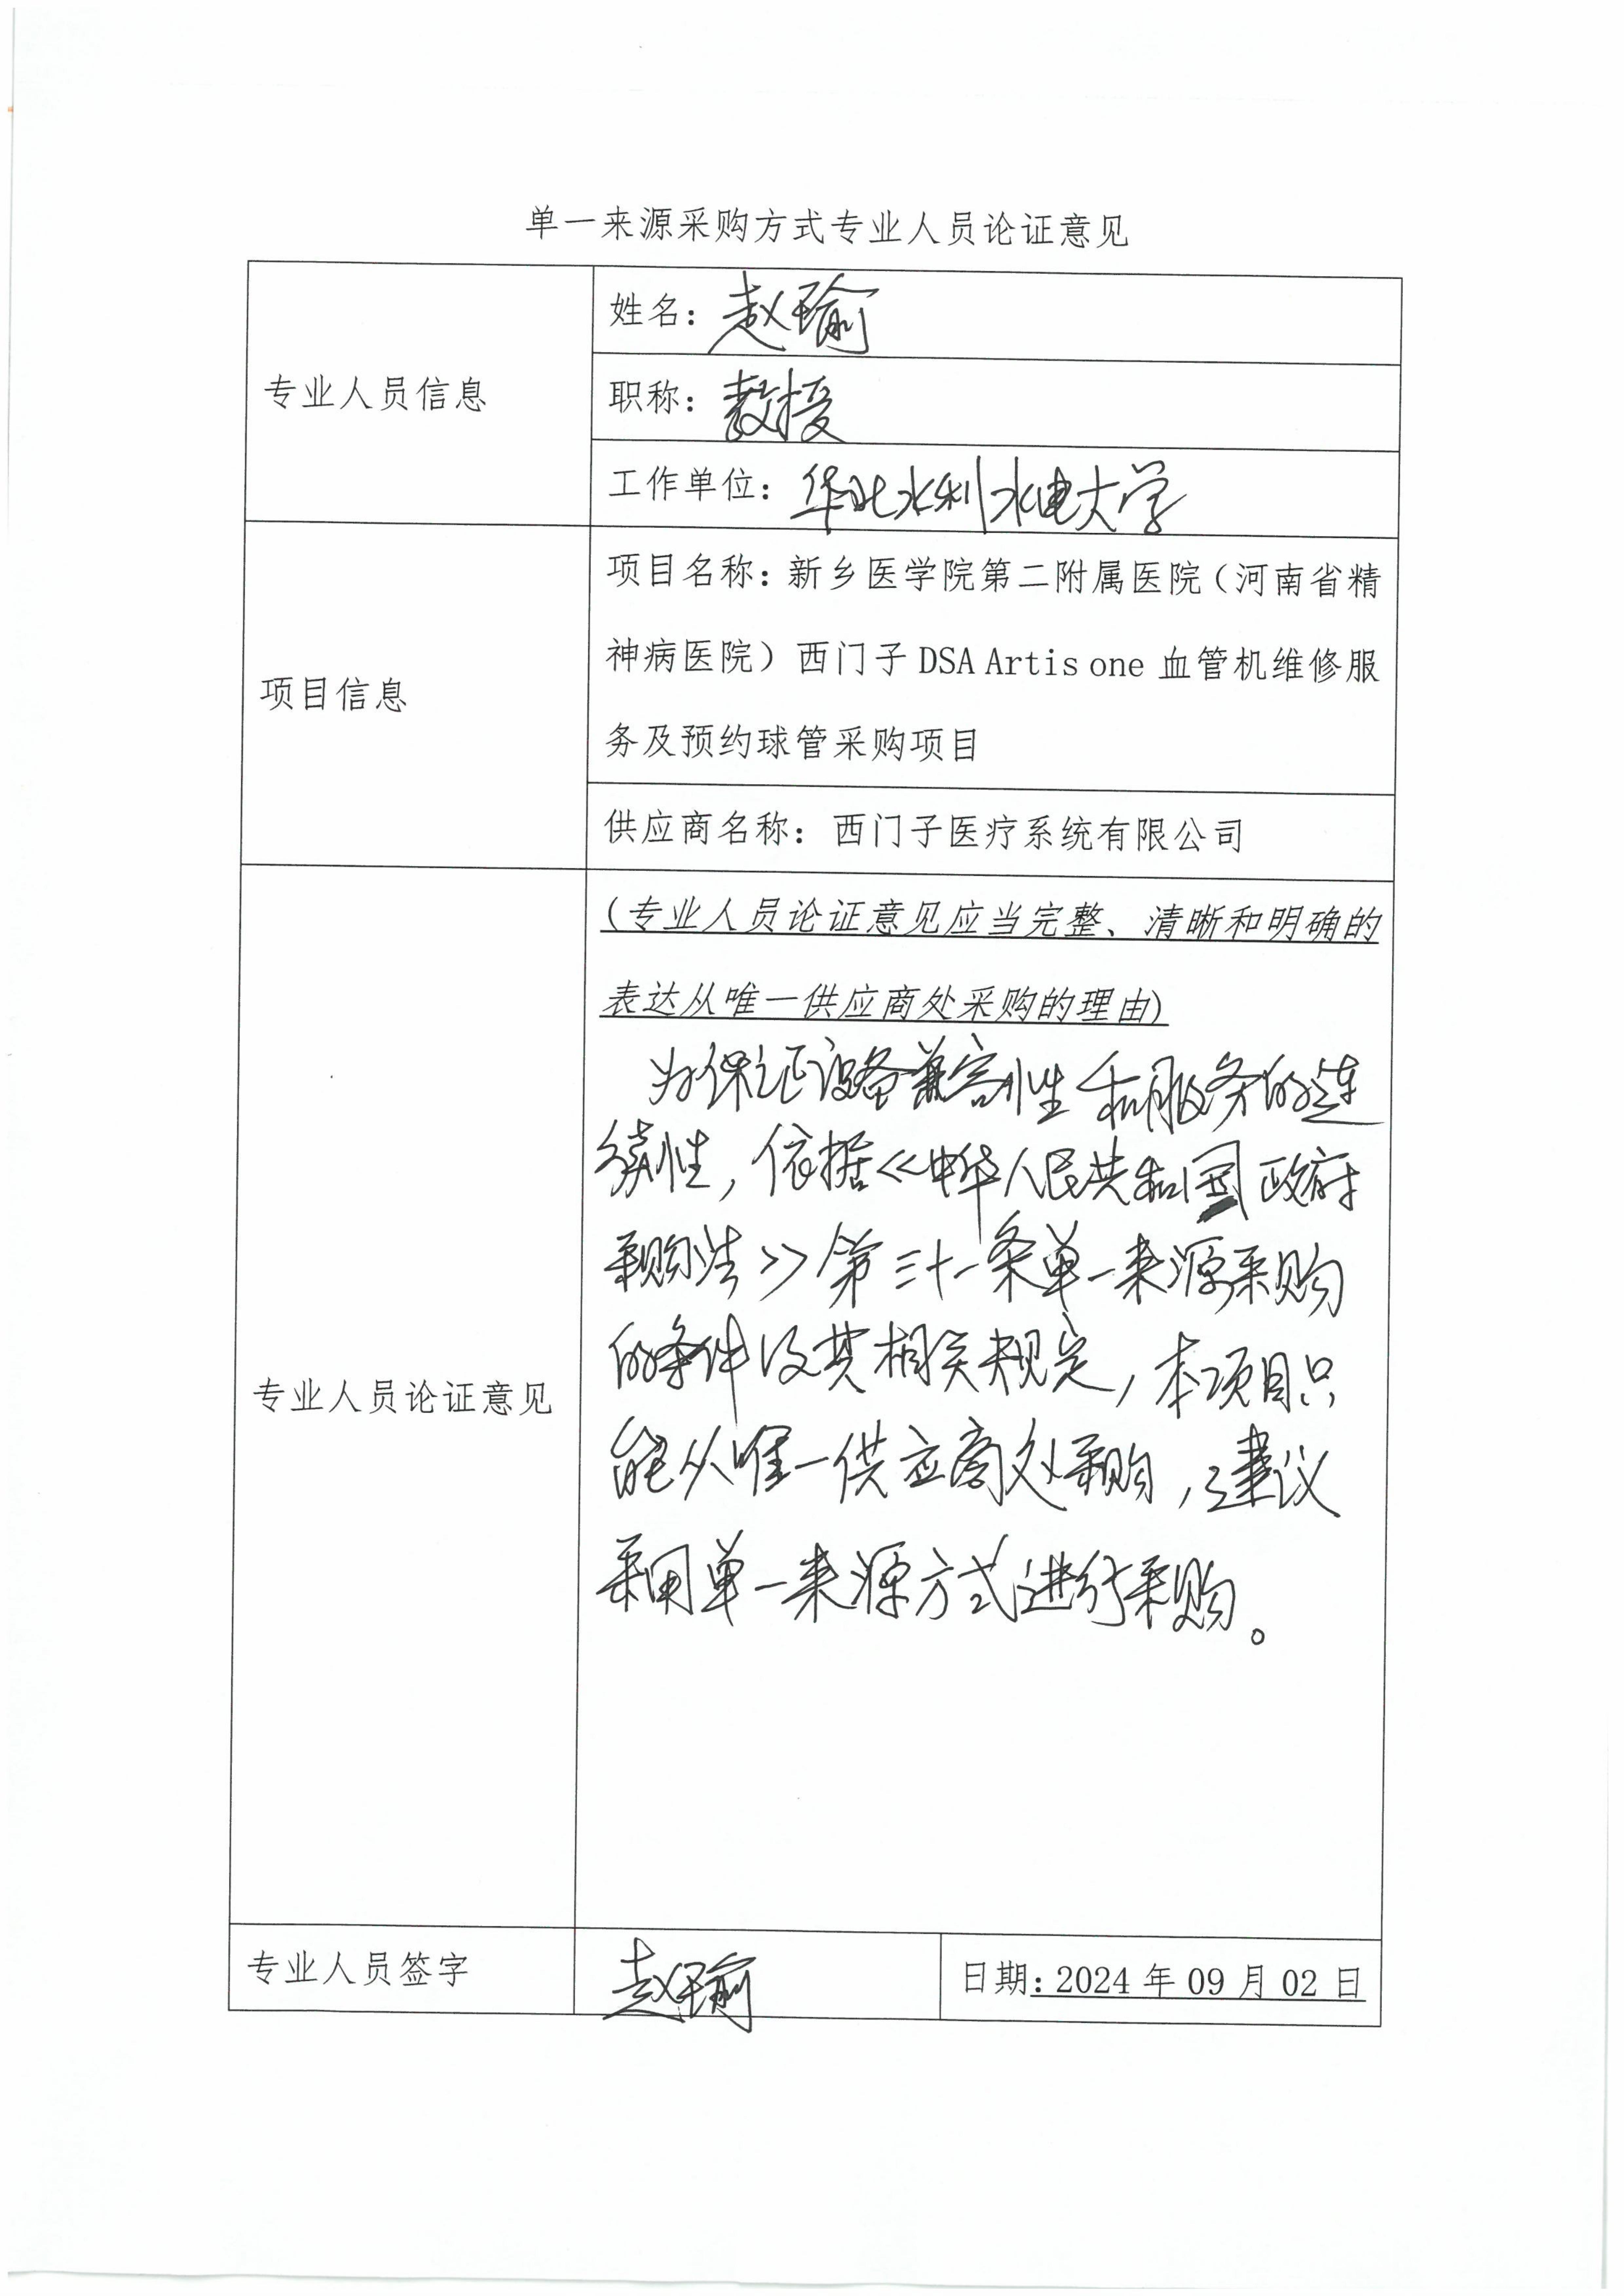 单一来源采购方式专业人员论证意见
专业人员信息
姓名：赵瑜
职称：教授
工作单位：华北水利水电大学
项目信息
项目名称：新乡医学院第二附属医院（河南省精
神病医院）西门子 DSA Artis one 血管机维修服
务及预约球管采购项目
供应商名称：西门子医疗系统有限公司
专业人员论证意见
（专业人员论证意见应当完整、清晰和明确的
表达从唯一供应商处采购的理由）
为保证设备兼容性和服务的连
续性，依据《中华人民共和国政府
采购法》第三十一条单一来源采购
的条件及其相关规定，本项目只
能从唯一供应商处采购，建议
采用单一来源方式进行采购。
专业人员签字
赵瑜
日期：2024 年 09 月 02 日